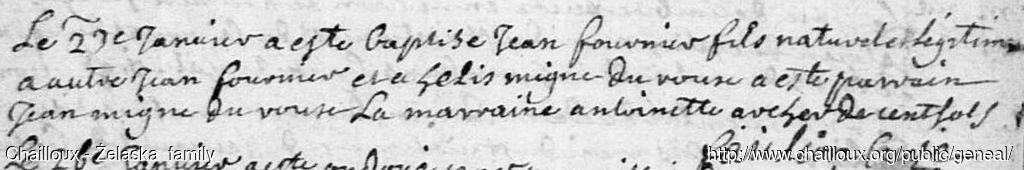 Le 27e Janvier a este baptise Jean fournier fils naturel et legitime
a autre Jean fournier et a helis migne du vouse a este parrain
Jean migne du vouse La marraine antoinette archer de centsols
Chailloux - Żelaska family
http://www.chailloux.org/public/geneal/
Janvier a este